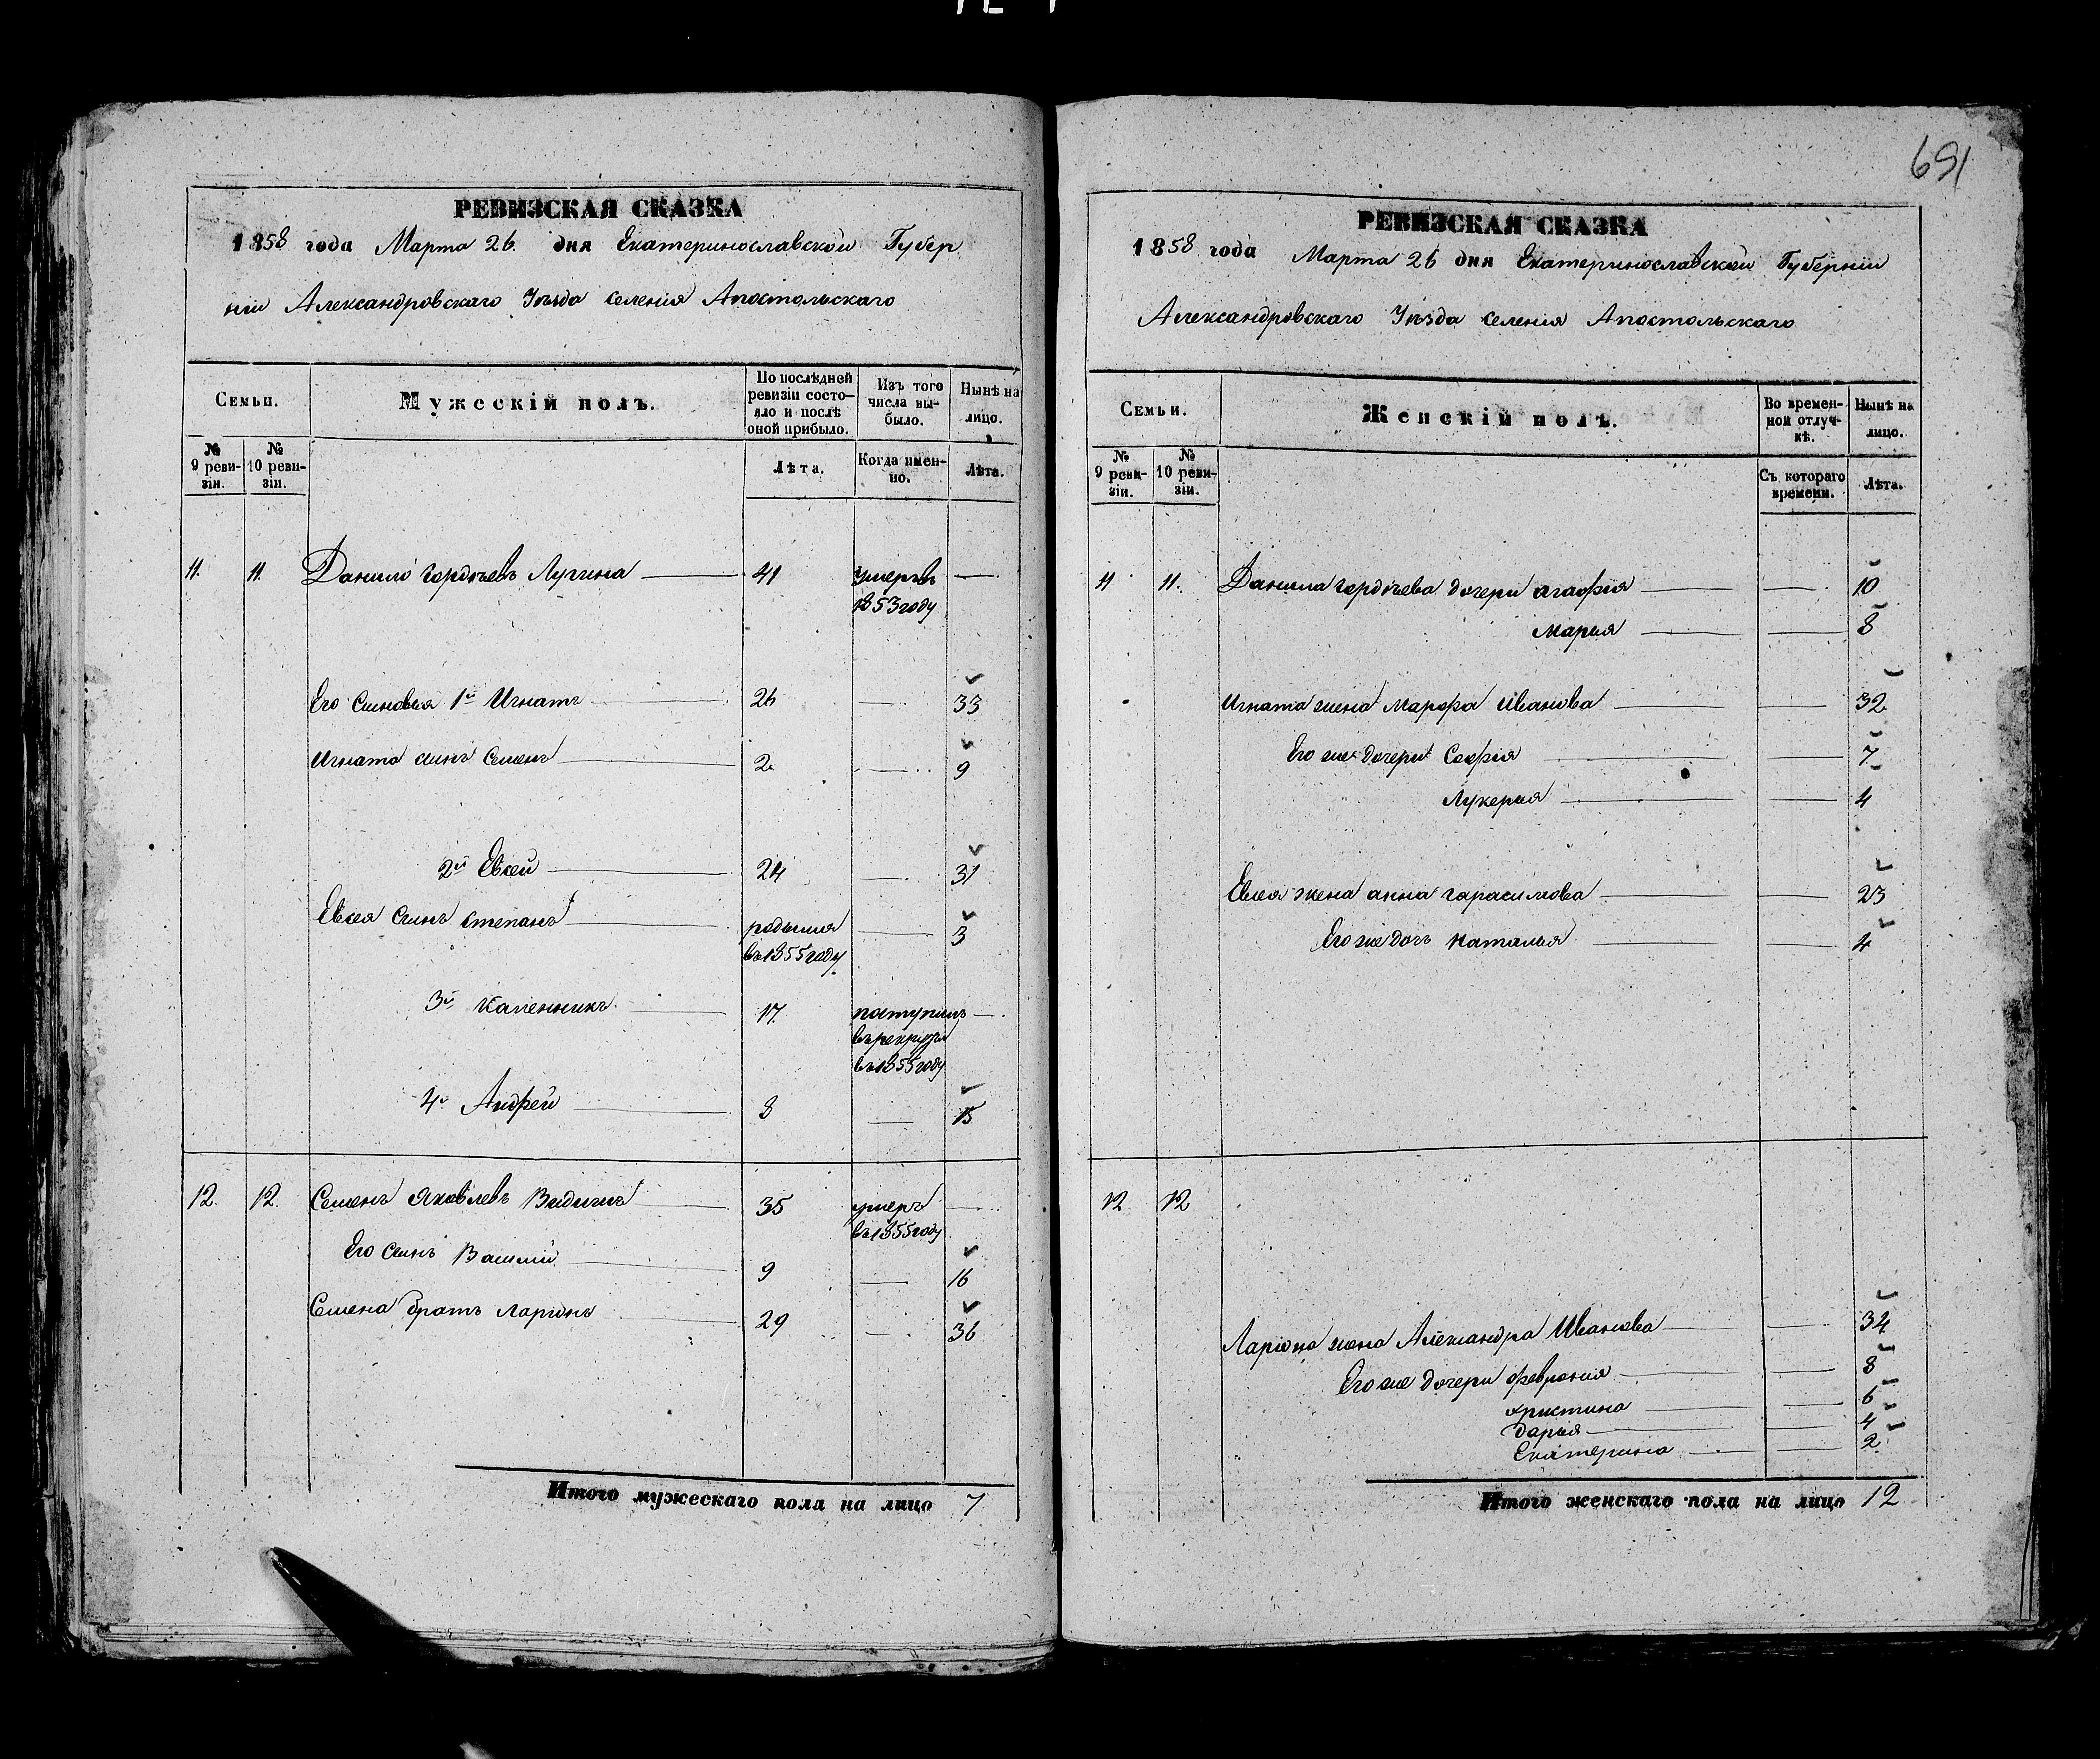 691
РЕВИЗСКАЯ СКАЗКА
1858 года Марта 26. дня Екатеринославской Губер
ніи Александровскаго Уѣзда селенія Апостольскаго
Семьи.
Мужескій полъ.
По послѣдней ревизіи состояло и послѣ оной прибыло.
Изъ того числа выбыло.
Нынѣ на лицо.
№ 9 ревизіи.
№ 10 ревизіи.
Лѣта.
Когда именно.
Лѣта.
11. 11. Данило Гордѣевъ Лугина 41 умеръ —
1853 году
Его Сыновья 1й Игнатъ 26 — 33
Игната сынъ Семенъ 2 — 9
2й Евсей 24 — 31
Евсея Сынъ Степанъ родился — 3
въ 1855 году
3й 17 поступилъ —
въ рекруты
въ 1855 году
4й Андрей 8 — 15
12. 12. Семенъ Яковлевъ 35 умеръ —
въ 1855 году
Его Сынъ Василий 9 — 16
Семена братъ Ларіонъ 29 — 36
Итого мужескаго пола на лицо 7
РЕВИЗСКАЯ СКАЗКА
1858 года Марта 26 дня Екатеринославской Губерніи
Александровскаго Уѣзда селенія Апостольскаго
Семьи.
Женскій полъ.
Во временной отлучкѣ.
Нынѣ на лицо.
№ 9 ревизіи.
№ 10 ревизіи.
Съ котораго времени.
Лѣта.
11 11. Данила Гордѣева дочери Агафія — 10
Марья — 8
Игната жена Марфа Иванова — 32
Его же дочери Софія — 7
Лукерья — 4
Евсея жена анна Гарасимова — 23
Его же дочь Наталья — 4
12 12
Ларіона жена Александра Иванова — 34
Его же дочери Феврония — 8
Христина — 6
Дарья — 4
Екатерина — 2
Итого женскаго пола на лицо 12